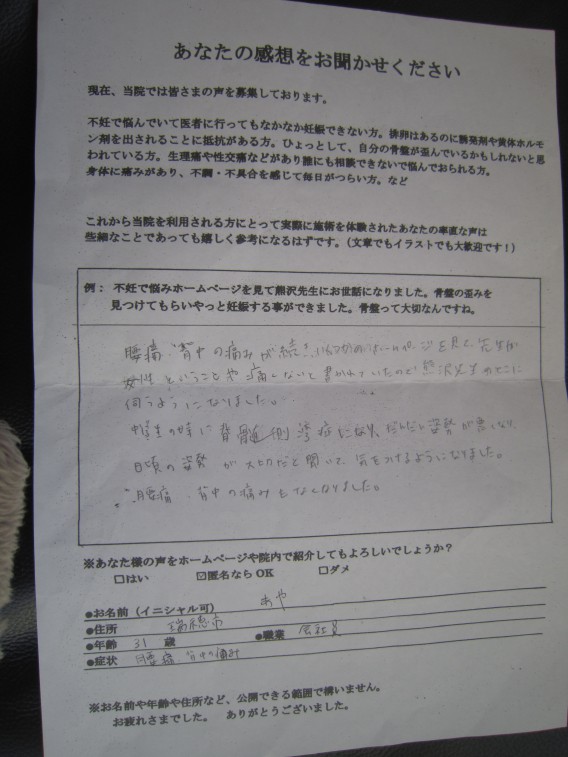 あなたの感想をお聞かせください
現在、当院では皆さまの声を募集しております。
不妊で悩んでいて医者に行ってもなかなか妊娠できない方。排卵はあるのに誘発剤や黄体ホルモ
ン剤を出されることに抵抗がある方。ひょっとして、自分の骨盤が歪んでいるかもしれないと思
われている方。生理痛や性交痛などがあり誰にも相談できないで悩んでおられる方。
身体に痛みがあり、不調・不具合を感じて毎日がつらい方。など
これから当院を利用される方にとって実際に施術を体験されたあなたの率直な声は
些細なことであっても嬉しく参考になるはずです。(文章でもイラストでも大歓迎です！)
例： 不妊で悩みホームページを見て熊沢先生にお世話になりました。骨盤の歪みを
見つけてもらいやっと妊娠する事ができました。骨盤って大切なんですね。
腰痛、背中の痛みが続き、 ホームページを見て、先生が
女性ということや痛くないと書かれていたので熊沢先生のところに
伺うようになりました。
中学生の時に脊髄側湾症になり、だんだん姿勢が悪くなり、
日頃の姿勢が大切だと聞いて、気をつけるようになりました。
腰痛、背中の痛みもなくなりました。
※あなた様の声をホームページや院内で紹介してもよろしいでしょうか？
□はい ☑匿名なら OK □ダメ
●お名前（イニシャル可） あや
●住所 瑞穂市
●年齢 31 歳 ●職業 会社員
●症状 腰痛 背中の痛み
※お名前や年齢や住所など、公開できる範囲で構いません。
お疲れさまでした。 ありがとうございました。